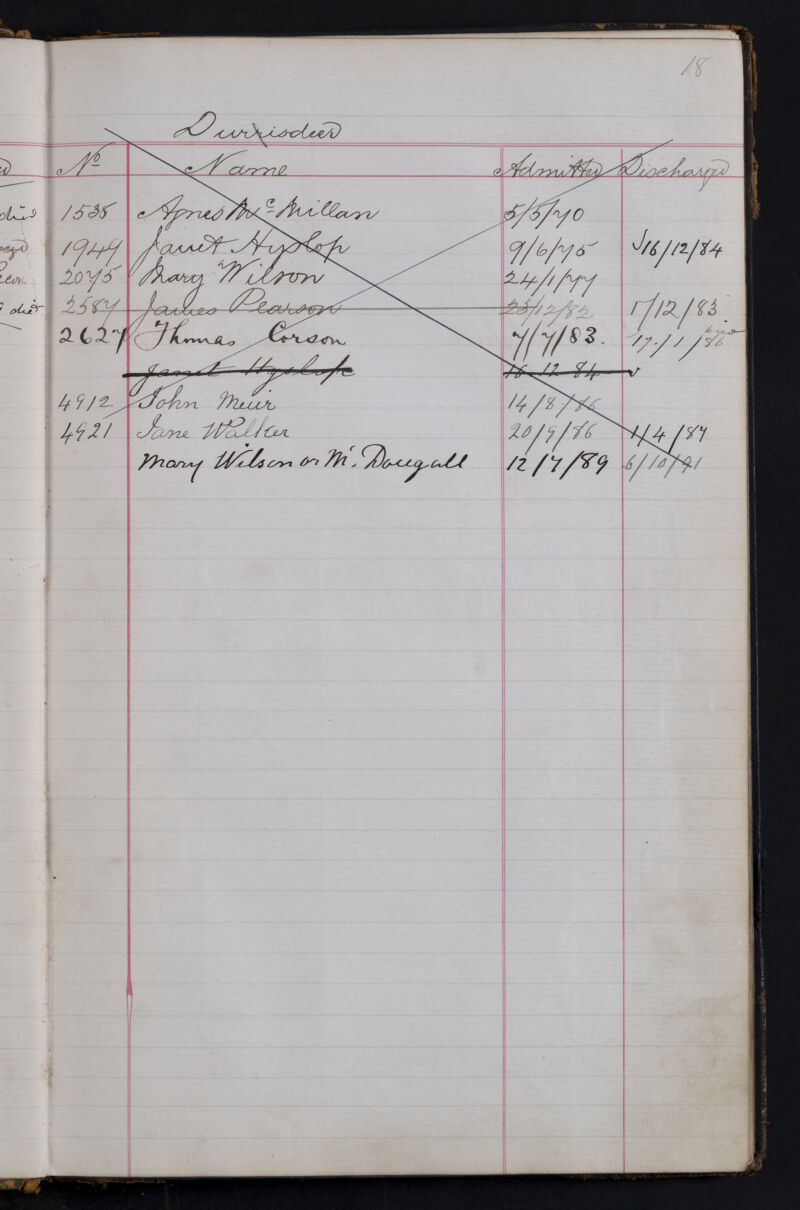 18
Durrisdeer
No Name Admitted Discharged
1535 Agnes Mc Millan 5/5/70
1949 Janet Hyslop 9/6/75 16/12/84
2075 Mary Wilson 24/1/77
2587 James Pearson 23/12/82 17/12/83
2627 Thomas Corson 7/7/83. 17/1/86 died
Janet Hyslop 16-12-84
4912 John Meur 14/8/86
4921 Jane Walker 20/9/86 1/4/87
Mary Wilson or Mc. Dougall 12/7/89 6/10/91
died
died